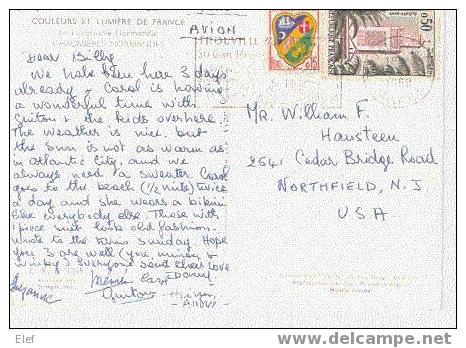 COULEURS ET LUMIÈRE DE FRANCE
La Pittoresque Normandie
CHAUMIÈRES NORMANDES
AVION
TROUVILLE
0,15
0,50
Dear Billy
We have been here 3 days
already & Carol is having
a wonderful time with
Guitou & the kids over here.
The weather is nice, but
the sun is not as warm as
in Atlantic City, and we
always need a sweater. Carol
goes to the beach (1/2 mile) twice
a day and she wears a bikini
like everybody else. Those with
1 piece suit look old fashion.
wrote to the twins Sunday. Hope
you 3 are well (you, mimsy &
winky) Everyone sends their love
Suzanne
Guitou
Mr. William F.
Hansteen
2541 Cedar Bridge Road
NORTHFIELD, N.J
U.S.A
Elef
delcampe.net